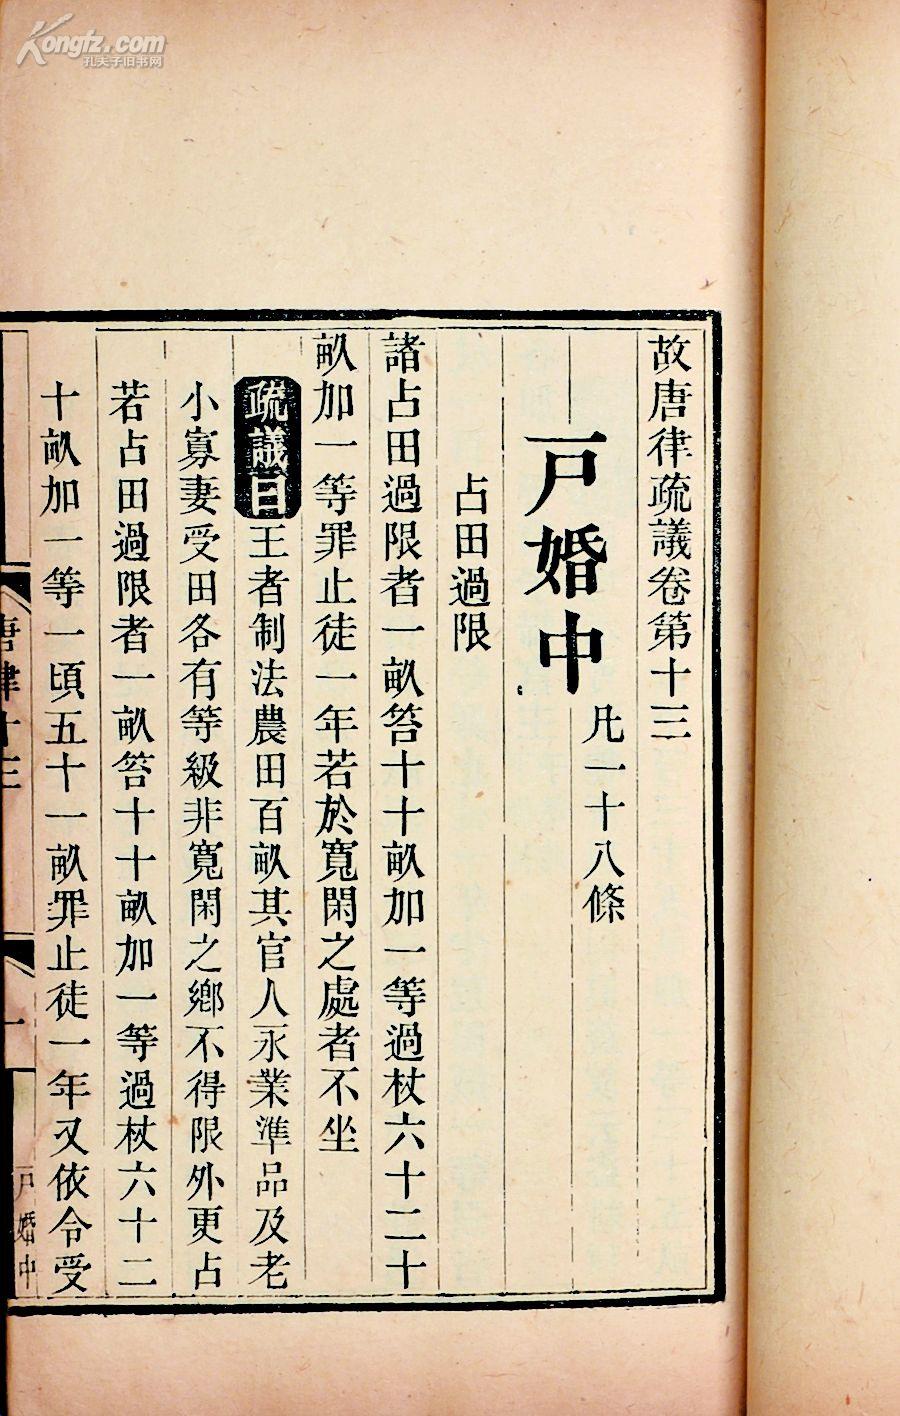 Kongfz.com
孔夫子旧书网
故唐律疏議卷第十三
戸婚中
凡一十八條
占田過限
諸占田過限者一畝笞十十畝加一等過杖六十二十
畝加一等罪止徒一年若於寬閑之處者不坐
疏議曰王者制法農田百畝其官人永業準品及老
小寡妻受田各有等級非寬閑之鄉不得限外更占
若占田過限者一畝笞十十畝加一等過杖六十二
十畝加一等一頃五十一畝罪止徒一年又依令受
唐律十三
一
戸婚中